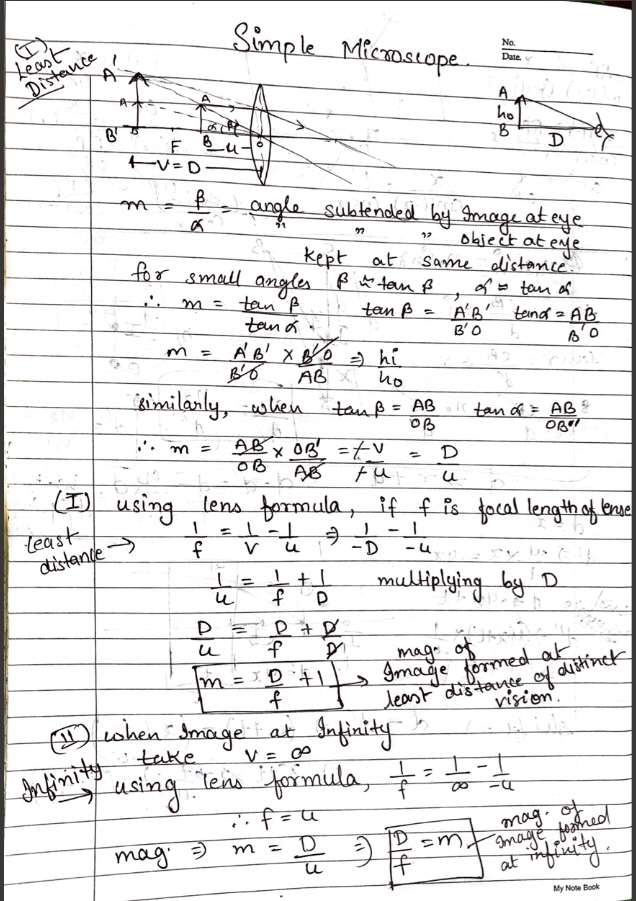 Simple Microscope.
No.
Date.
(I)
Least
Distance
A'
A
B'
B
F
A
α
β
B
u
O
V = D
A
ho
B
D
m = β/α = angle subtended by Image at eye
" " " object at eye
kept at same distance.
for small angles β ≈ tan β , α ≈ tan α
∴ m = tan β/tan α . tan β = A'B'/B'O tan α = AB/B'O
m = A'B'/B'O × B'O/AB ⇒ hi/ho
similarly, when tan β = AB/OB tan α = AB/OB'
∴ m = AB/OB × OB'/AB = -V/-u = D/u
(I) using lens formula, if f is focal length of lense
least
distance →
1/f = 1/V - 1/u ⇒ 1/-D - 1/-u
1/u = 1/f + 1/D multiplying by D
D/u = D/f + D/D
m = D/f + 1 → mag. of
Image formed at
least distance of distinct
vision.
(II) when Image at Infinity
take V = ∞
Infinity →
using lens formula, 1/f = 1/∞ - 1/-u
∴ f = u
mag. ⇒ m = D/u ⇒ D/f = m
mag. of
Image formed
at infinity.
My Note Book